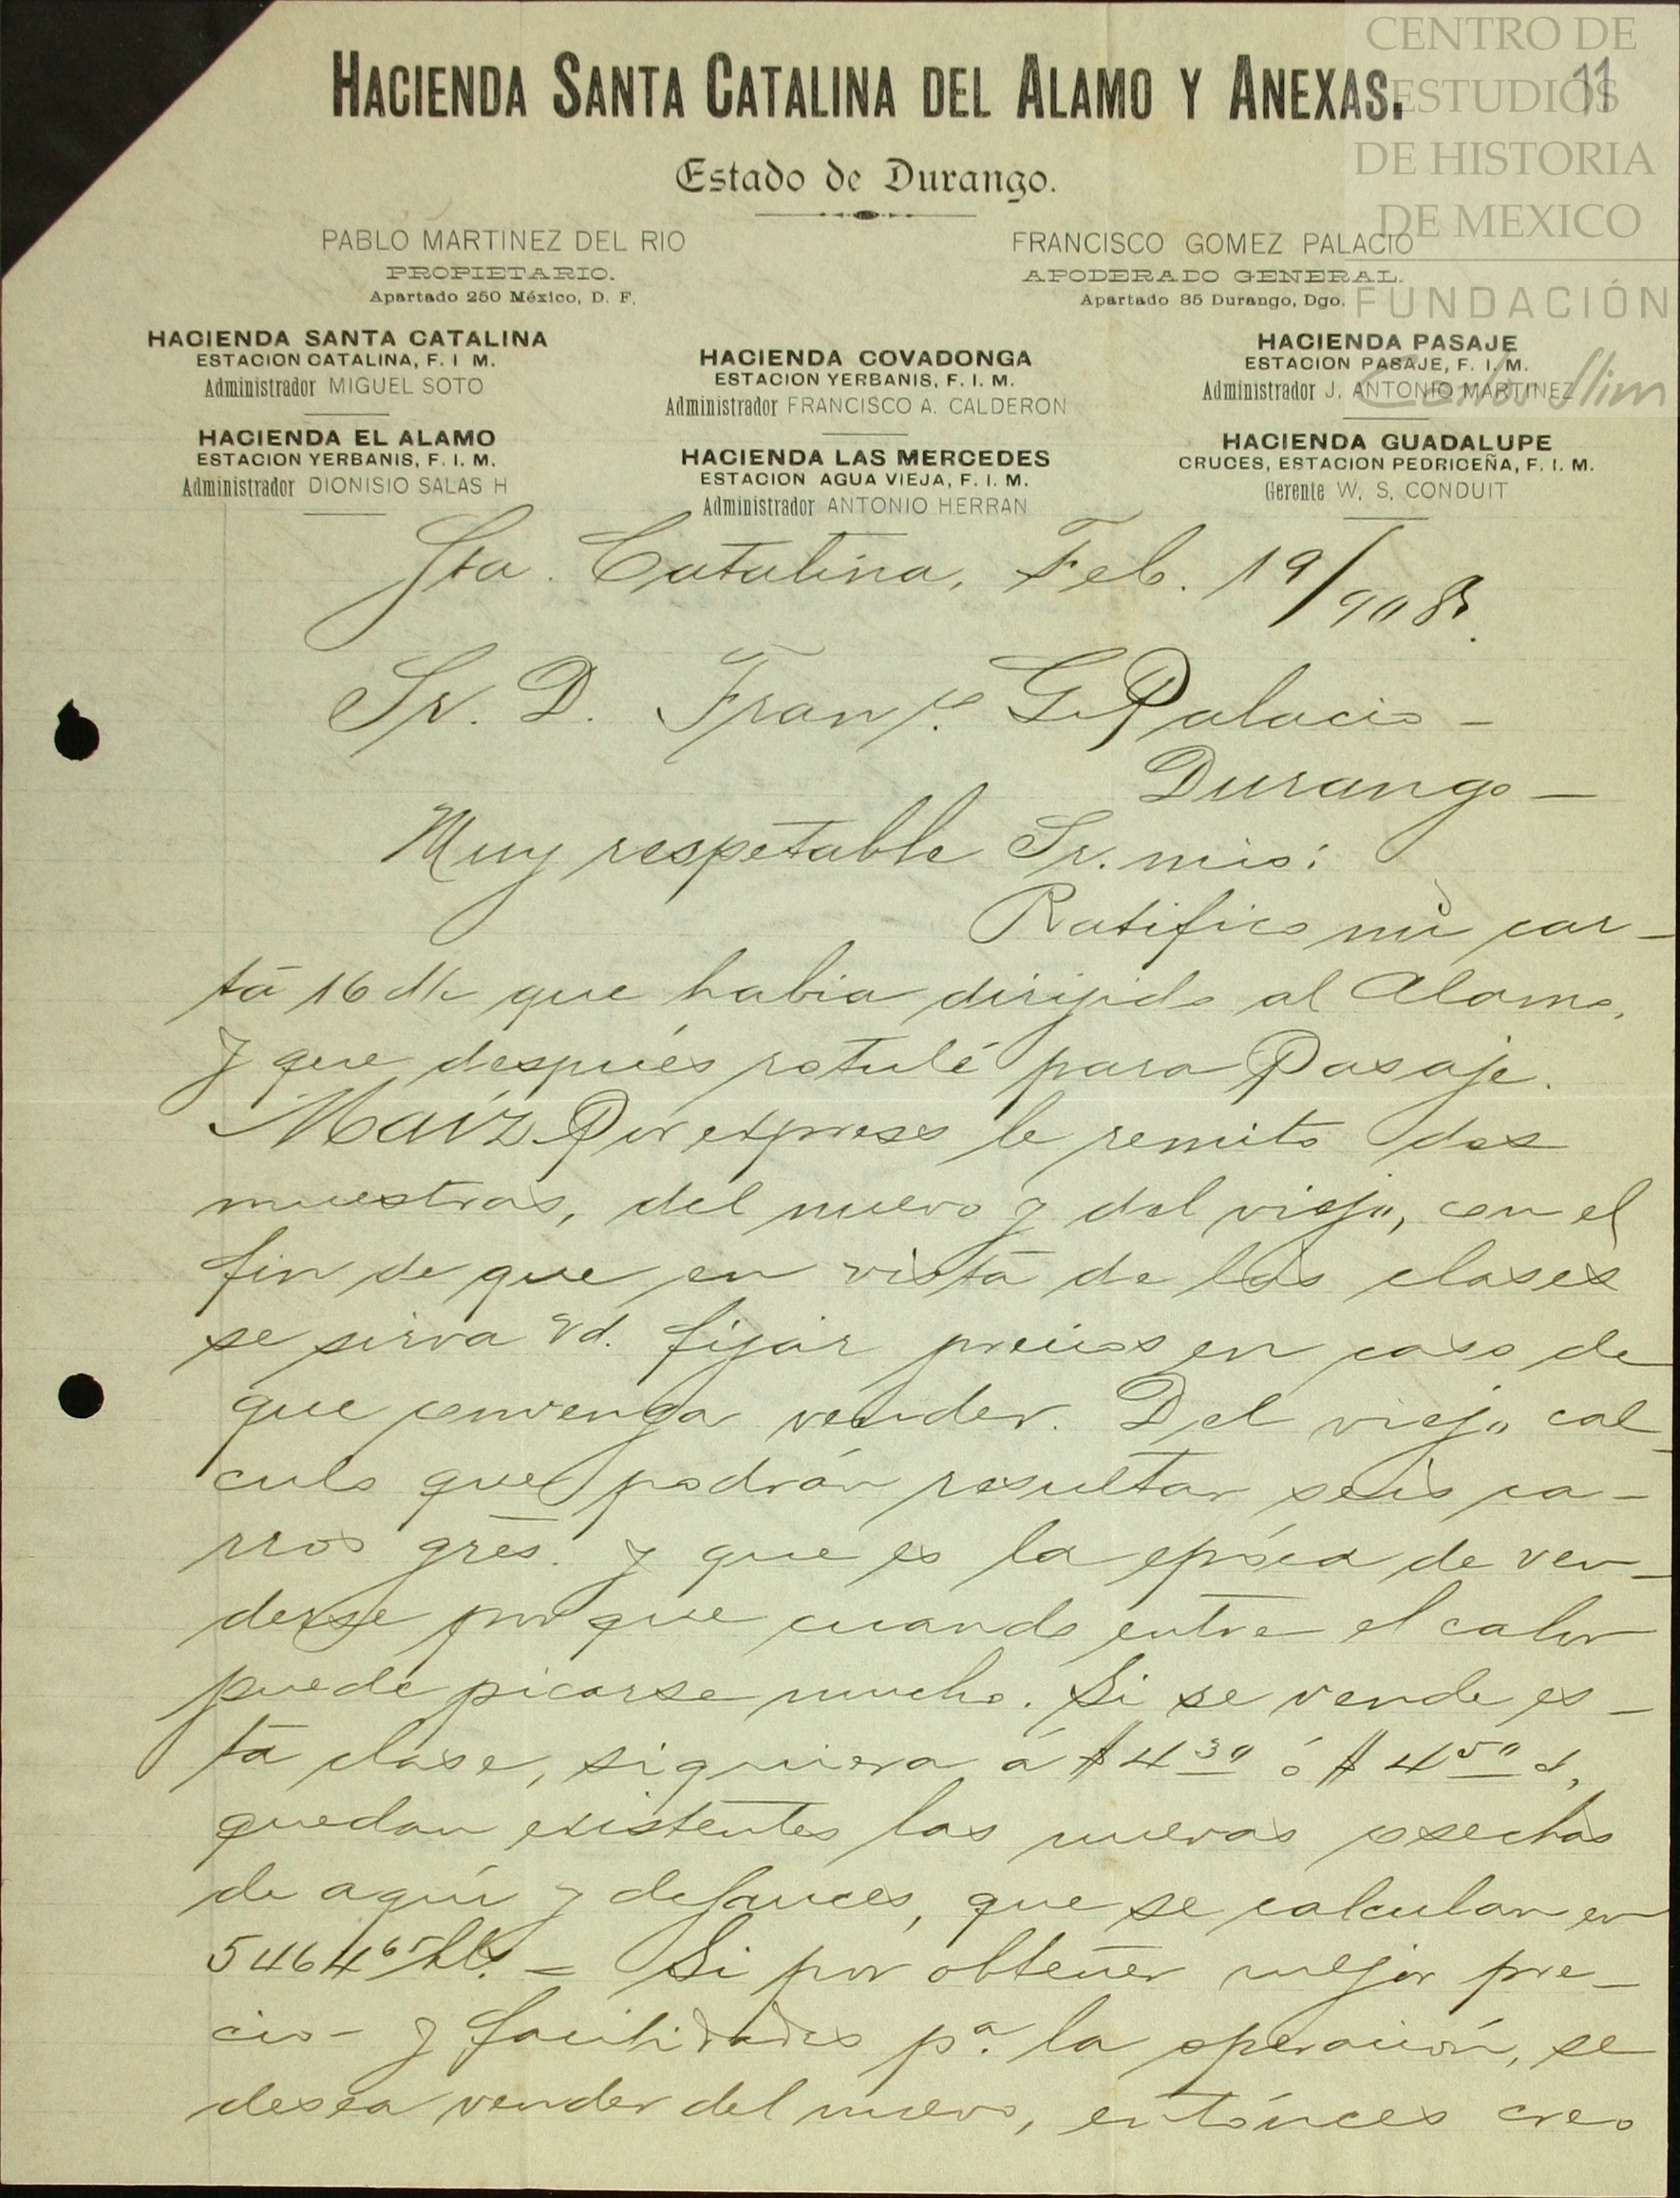 CENTRO DE
ESTUDIOS
DE HISTORIA
DE MEXICO
FUNDACIÓN
Carlos Slim
11
HACIENDA SANTA CATALINA DEL ALAMO Y ANEXAS.
Estado de Durango.
PABLO MARTINEZ DEL RIO
PROPIETARIO.
Apartado 250 México, D. F.
FRANCISCO GOMEZ PALACIO
APODERADO GENERAL.
Apartado 85 Durango, Dgo.
HACIENDA SANTA CATALINA
ESTACION CATALINA, F. I M.
Administrador MIGUEL SOTO
HACIENDA EL ALAMO
ESTACION YERBANIS, F. I. M.
Administrador DIONISIO SALAS H
HACIENDA COVADONGA
ESTACION YERBANIS, F. I. M.
Administrador FRANCISCO A. CALDERON
HACIENDA LAS MERCEDES
ESTACION AGUA VIEJA, F. I. M.
Administrador ANTONIO HERRAN
HACIENDA PASAJE
ESTACION PASAJE, F. I. M.
Administrador J. ANTONIO MARTINEZ
HACIENDA GUADALUPE
CRUCES, ESTACION PEDRICEÑA, F. I. M.
Gerente W. S. CONDUIT
Sta. Catalina, Feb. 19/908.
Sr. D. Franco. G. Palacio -
Durango -
Muy respetable Sr. mio:
Ratifico mi car-
ta 16 d/c que habia dirigido al Alamo,
y que después rotulé para Pasaje.
Maíz Por express le remito dos
muestras, del nuevo y del viejo, con el
fin de que en vista de las clases
se sirva Vd. fijar precios en caso de
que convenga vender. Del viejo cal-
culo que podrán resultar seis ca-
rros gres. y que es la época de ven-
derse por que cuando entre el calor
puede picarse mucho. Si se vende es-
ta clase, siquiera á $4 30 ó $4 50
quedan existentes las nuevas cosechas
de aquí y defauces, que se calculan en
5464 65 hlts. = Si por obtener mejor pre-
cio - y facilidades pa. la operación, se
desea vender del nuevo, entónces creo